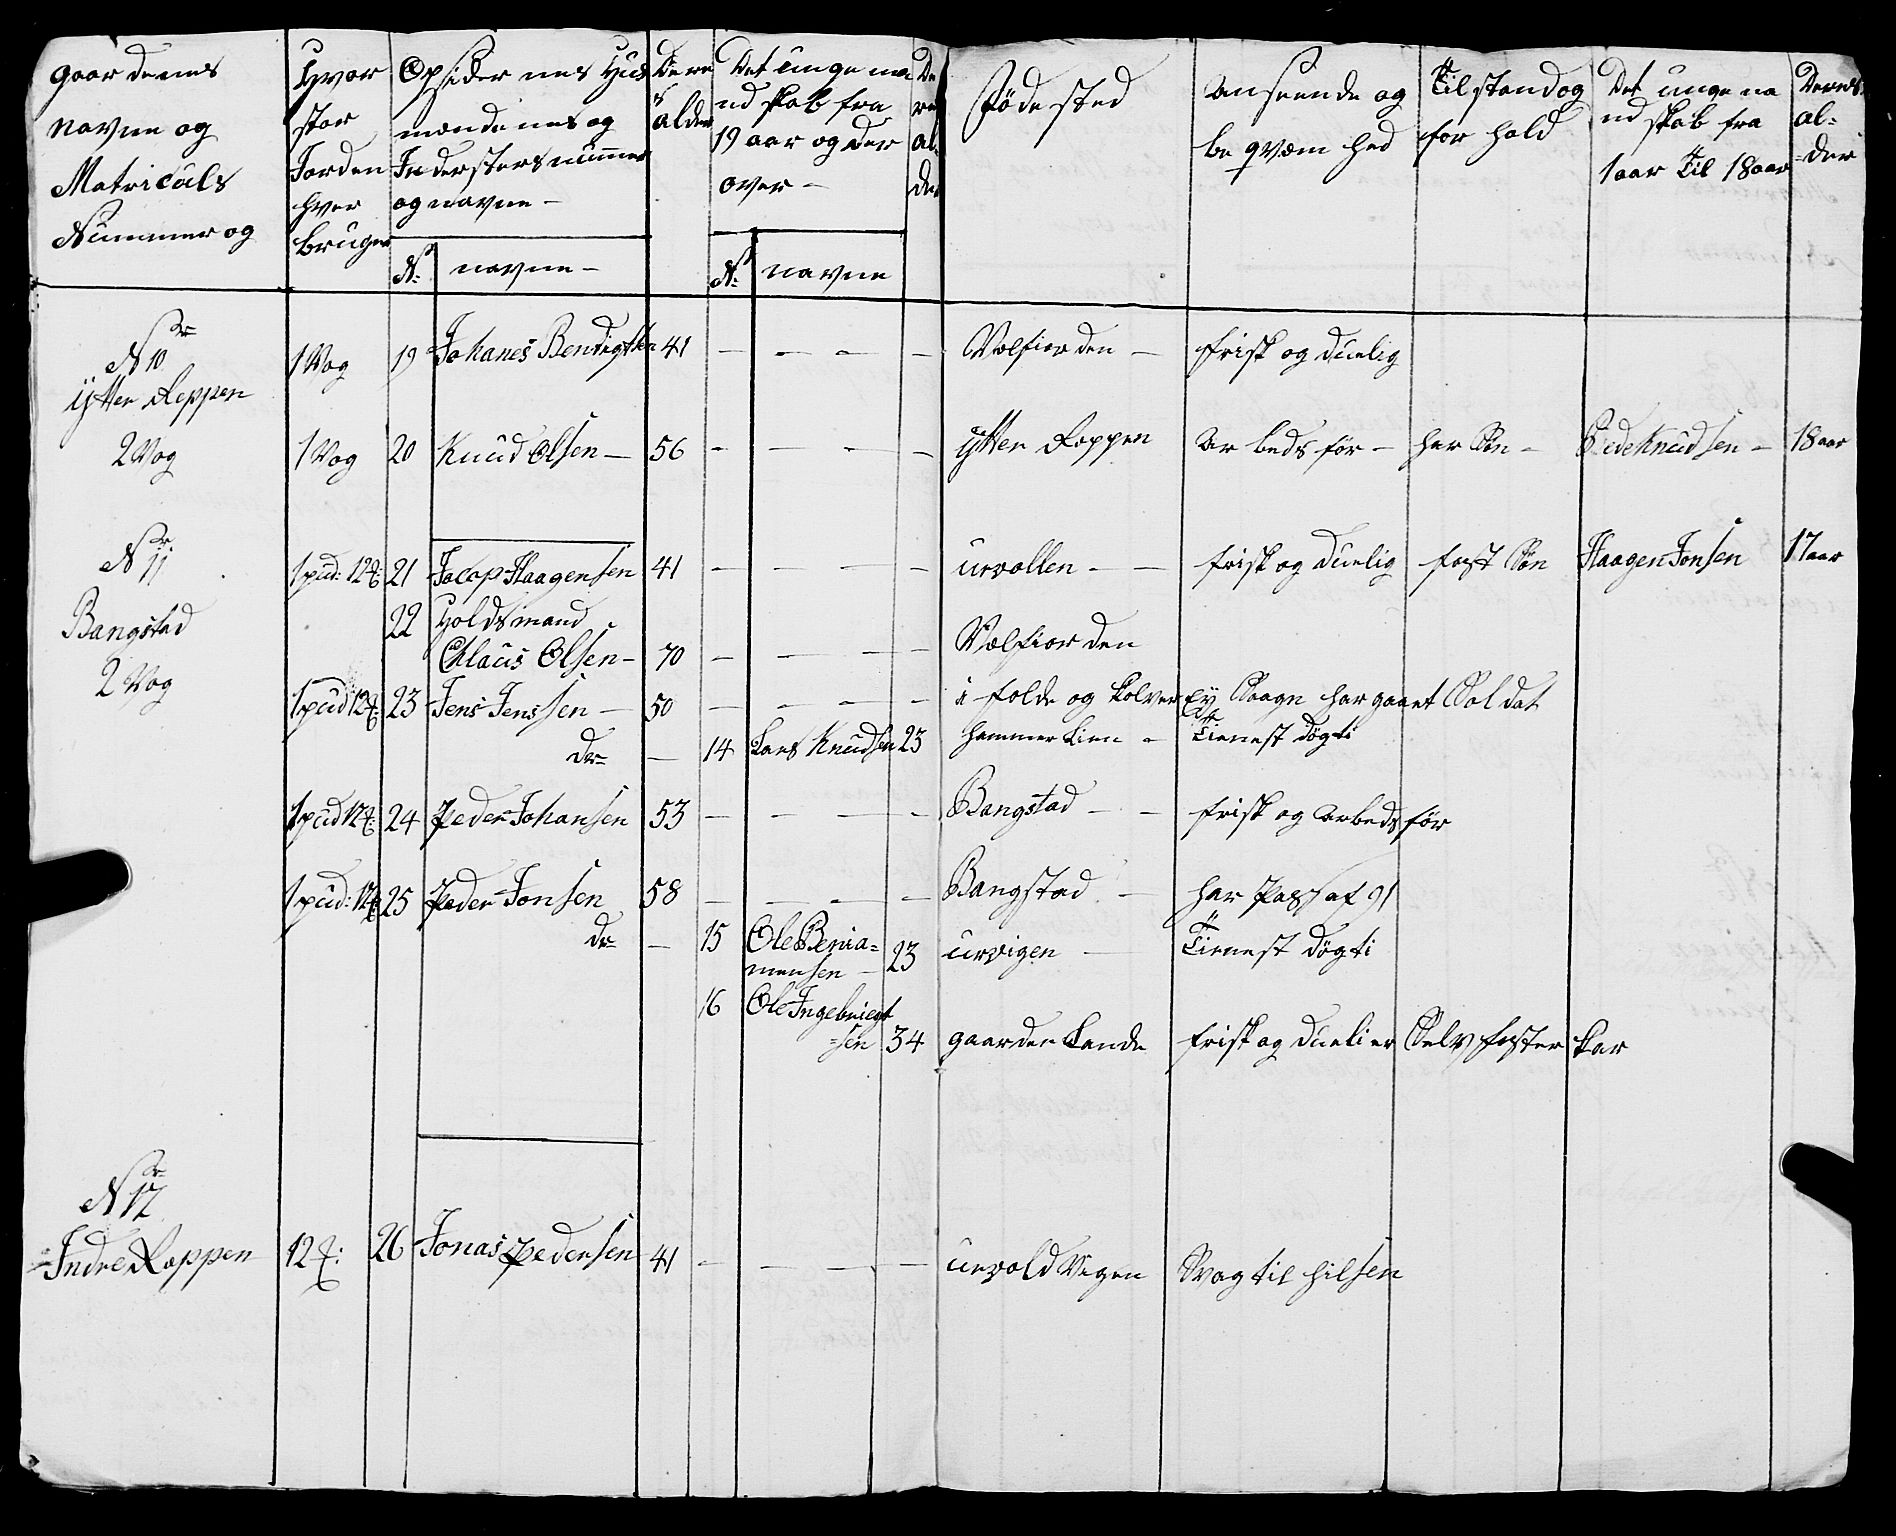 gaardenes navne og Matriculs Nummer og
Hvor stor Jorden hver bruger
Opsidernes Huusmændenes og Inderstersnummer og navne –
Deres alder
Det unge mandskab fra 19 aar og der over –
Deres alder
Föde sted
anseende og beqvæmhed
Tilstand og forhold
Det unge mandskab fra 1 aar Til 18 aar
Deres alder
No navne –
No navne
Nr 10 ÿtter Roppen 2 Vog
1 Vog 19 Johanes Bendigtsen 41 – – – – Velfiorden – frisk og duelig
1 Vog 20 Knud Olsen – 56 – – – – ÿtter Roppen arbedsför – har Sön – Pede Knudsen – 18 aar
Nr 11 Bangstad 2 Vog
1 pud: 12 ℔: 21 Jacop Haagensen 41 – – – – urvollen – – frisk og duelig fost Sön Haagen Jonsen 17 aar
22 Holdsmand
Claus Olsen – 70 – – – – Velfiorden
1 pud 12 ℔: 23 Jens Jenssen – 50 – – – – i folde og Kolver Eÿ Saagn har gaaet Soldat
do – 14 Lars Knudsen 23 hammer Lien – Tienest dögti
1 pud 12 ℔: 24 Peder Johansen 53 – – – – Bangstad – – frisk og arbedsför
1 pud: 12 ℔ 25 Peder Jonsen 58 – – – – Bangstad – har Pas af 91
do – 15 Ole Benia=
mensen – 23 urvigen – Tienest dögti
16 Ole Ingebrigt
=sen 34 gaarden Lande frisk og dueli er Selv foster Kar
Nr 12
Indre Roppen 12 ℔: 26 Jonas Pedersen 41 – – – – urvold Vegen Svag til hilsen